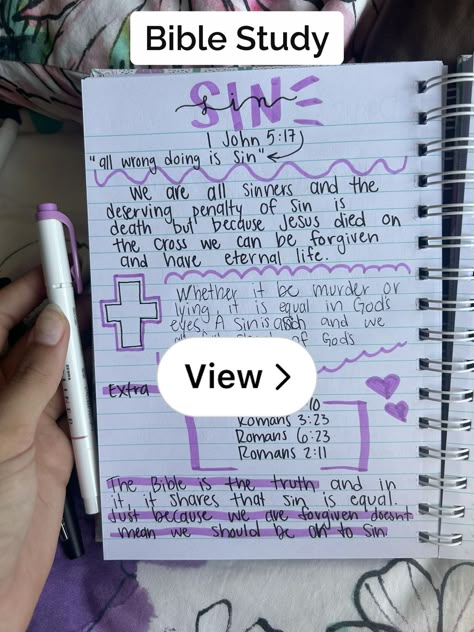 Bible Study
SIN
sin
1 John 5:17
"all wrong doing is Sin"
We are all Sinners and the
deserving penalty of Sin is
death but because Jesus died on
the Cross we can be forgiven
and have eternal life.
Whether it be murder or
lying it is equal in God's
eyes. A Sin is a Sin and we
of God's
View >
Extra
10
Romans 3:23
Romans 6:23
Romans 2:11
The Bible is the truth and in
it, it shares that sin is equal.
Just because we are forgiven doesnt
mean we should be ok to Sin